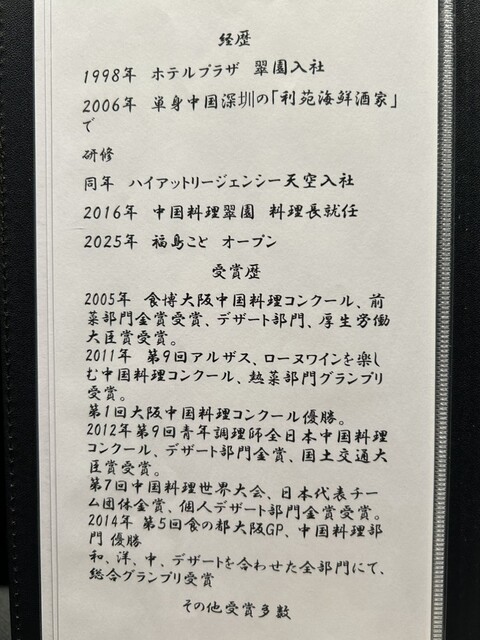 経歴
1998年　ホテルプラザ　翠園入社
2006年　単身中国深圳の「利苑海鮮酒家」
で
研修
同年　ハイアットリージェンシー天空入社
2016年　中国料理翠園　料理長就任
2025年　福島こと　オープン
受賞歴
2005年　食博大阪中国料理コンクール、前
菜部門金賞受賞、デザート部門、厚生労働
大臣賞受賞。
2011年　第9回アルザス、ローヌワインを楽し
む中国料理コンクール、熱菜部門グランプリ
受賞。
第1回大阪中国料理コンクール優勝。
2012年第9回青年調理師全日本中国料理
コンクール、デザート部門金賞、国土交通大
臣賞受賞。
第7回中国料理世界大会、日本代表チー
ム団体金賞、個人デザート部門金賞受賞。
2014年　第5回食の都大阪GP、中国料理部
門　優勝
和、洋、中、デザートを合わせた全部門にて、
総合グランプリ受賞
その他受賞多数